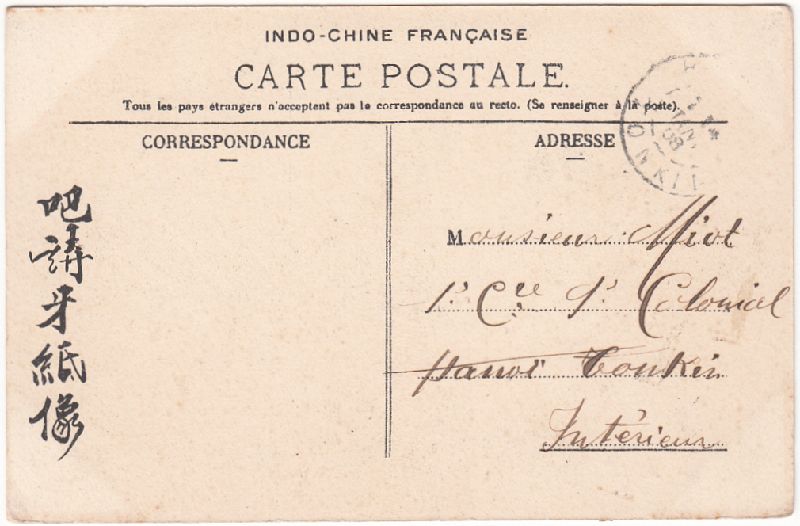 INDO-CHINE FRANÇAISE
CARTE POSTALE.
Tous les pays étrangers n'acceptent pas la correspondance au recto. (Se renseigner à la poste).
CORRESPONDANCE
ADRESSE
吧
牙紙像
Monsieur Miot
1e Cie 9e Colonial
Hanoi Tonkin
Intérieur
TONKIN
08